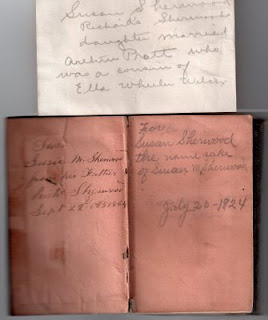 Susan Sherwood
Richard's Sherwood
daughter married
Arthur Pratt who
was a cousin of
Ella Wheeler Wilcox
Susie M. Sherwood
from her Father
Sherwood
Sept 28
For
Susan Sherwood
the name sake
of Susan M Sherwood
July 20-1924